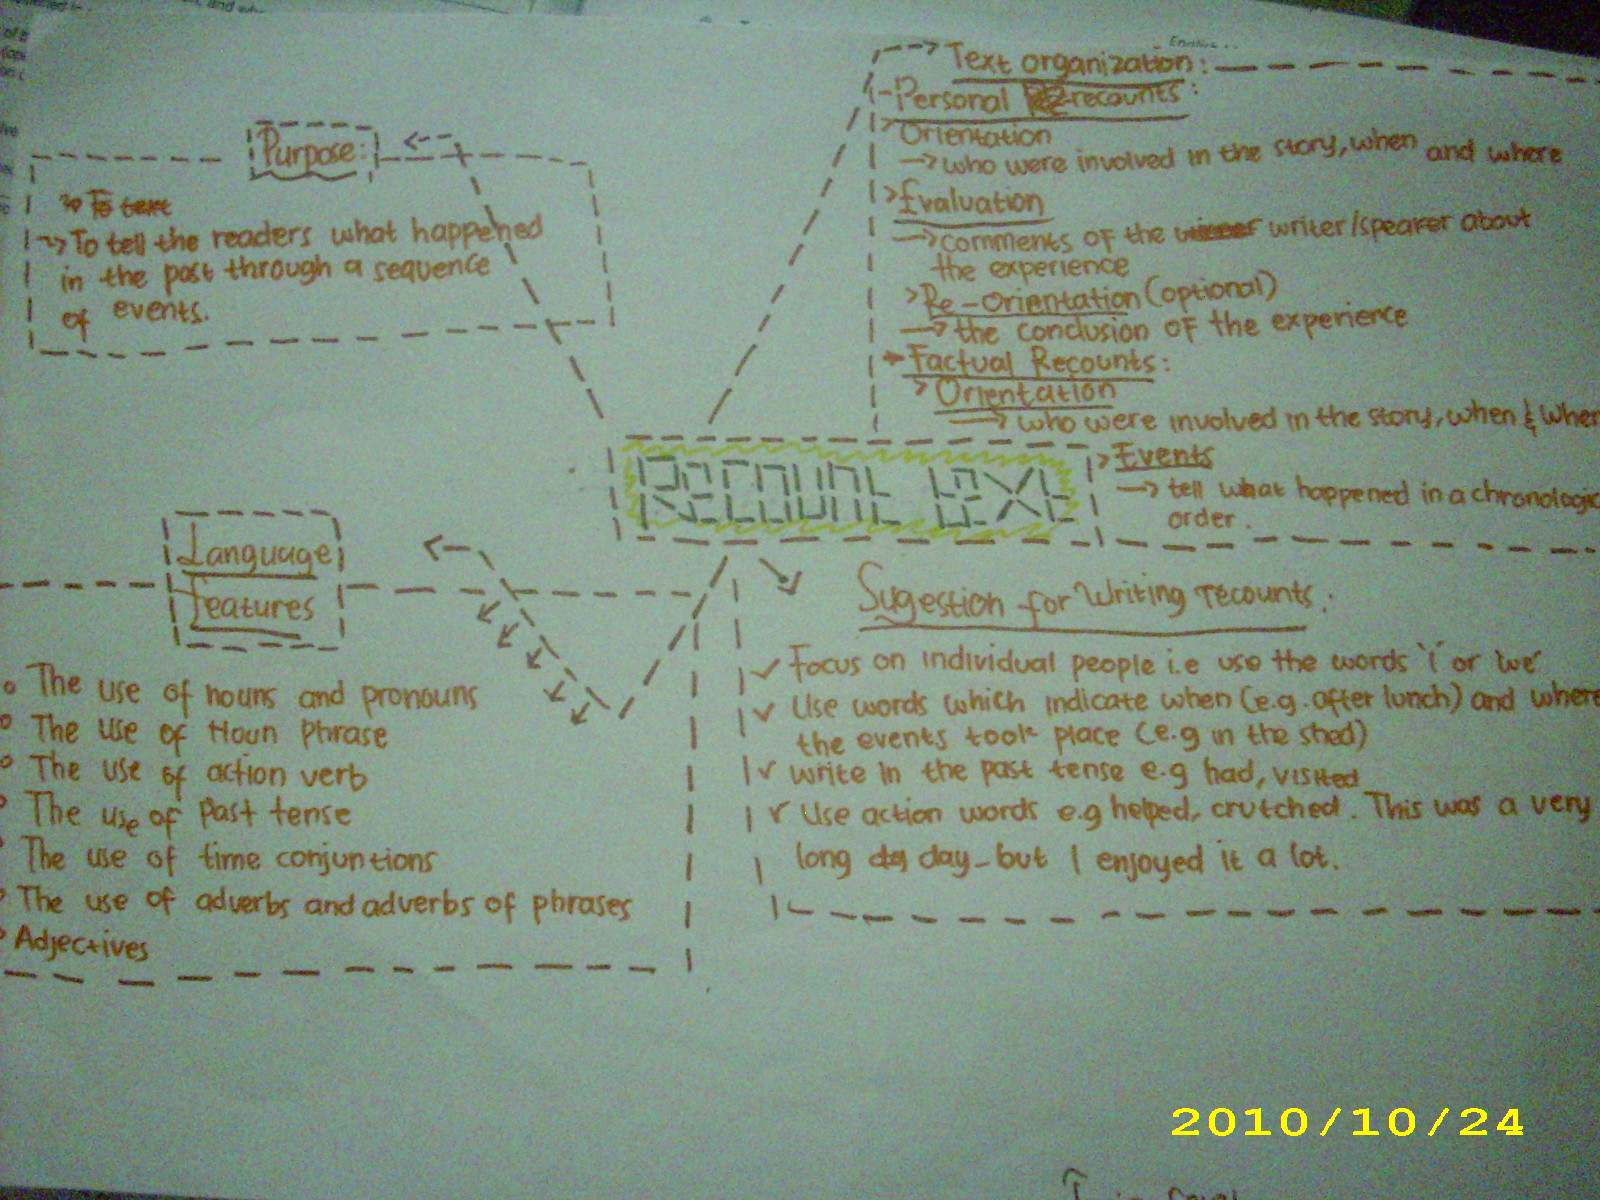 Purpose:
To text
To tell the readers what happened
in the past through a sequence
of events.
Text organization:
Personal recounts:
Orientation
who were involved in the story, when and where
Evaluation
comments of the writer/speaker about
the experience
Re-orientation (optional)
the conclusion of the experience
Factual Recounts:
Orientation
who were involved in the story, when & wher
Events
tell what happened in a chronologic
order.
Recount text
Language
Features
The use of nouns and pronouns
The use of Noun Phrase
The use of action verb
The use of Past tense
The use of time conjuntions
The use of adverbs and adverbs of phrases
Adjectives
Sugestion for Writing recounts:
Focus on individual people i.e use the words 'i' or 'we'
Use words which indicate when (e.g. after lunch) and where
the events took place (e.g in the shed)
write in the past tense e.g had, visited
Use action words e.g helped, crutched. This was a very
long day - but I enjoyed it a lot.
2010/10/24